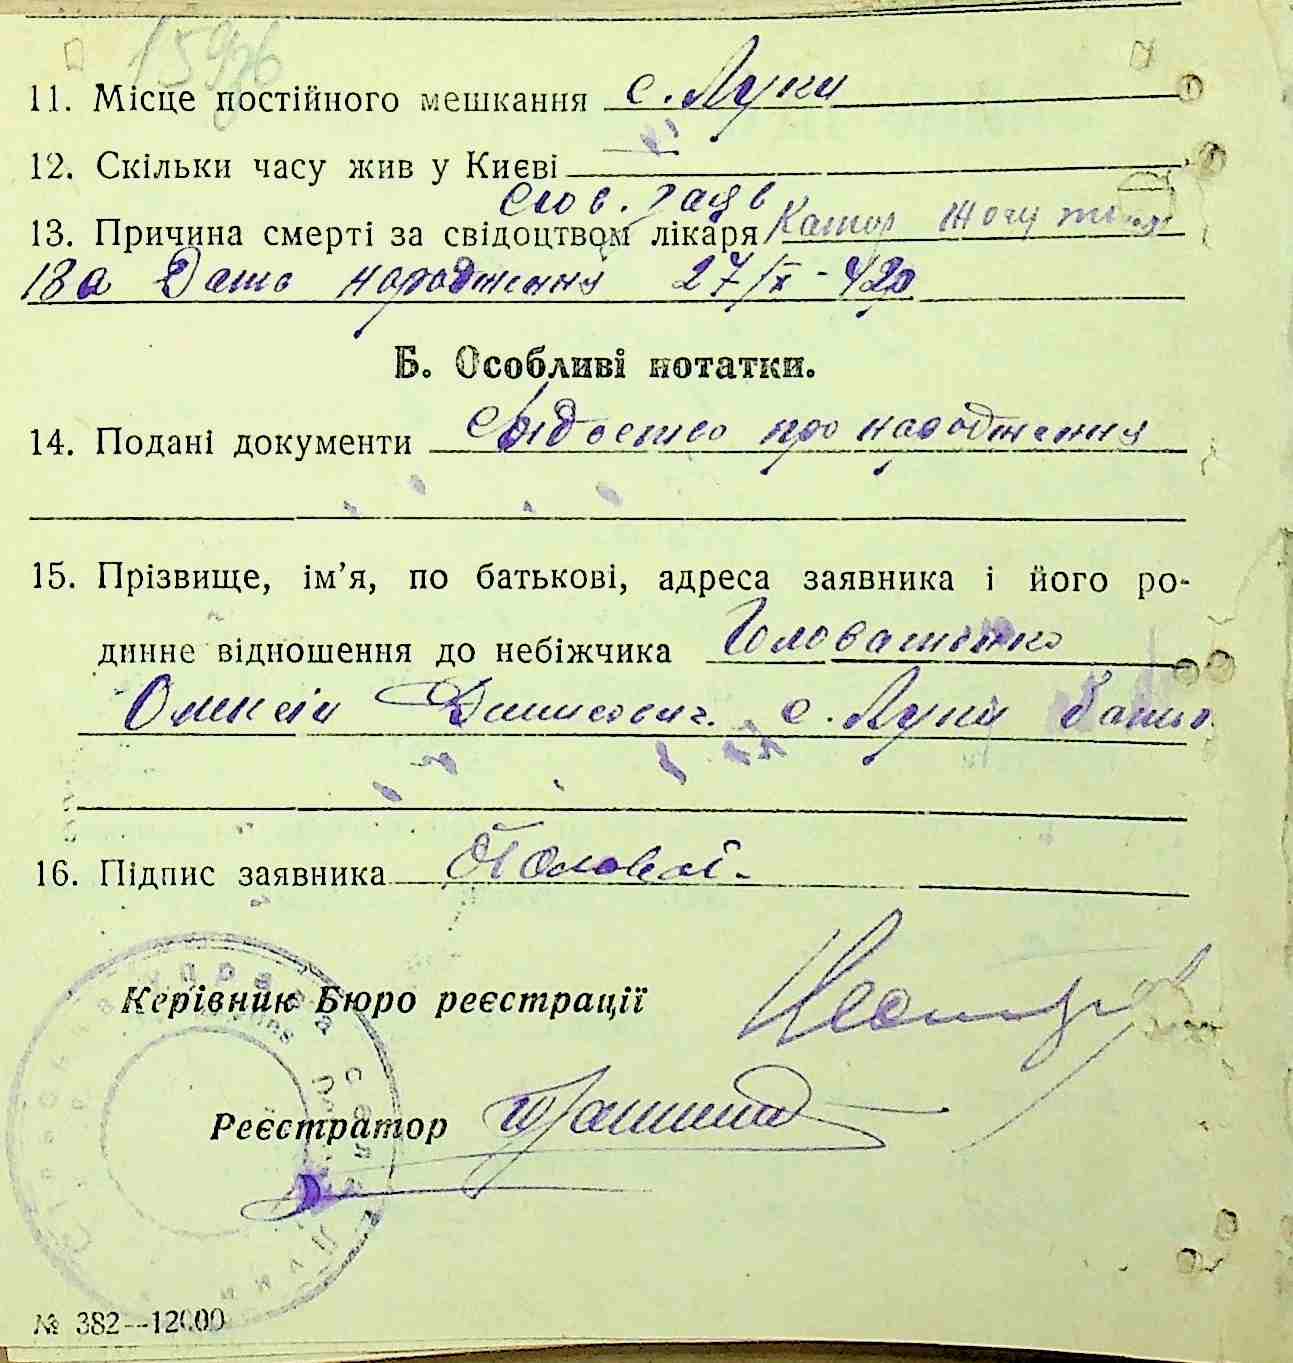 11. Місце постійного мешкання с. Луки
12. Скільки часу жив у Києві
слов.
13. Причина смерті за свідоцтвом лікаря
13а Дата народження 27/IX - 42р
Б. Особливі нотатки.
14. Подані документи Свідоство про народження
15. Прізвище, ім’я, по батькові, адреса заявника і його ро-
динне відношення до небіжчика Головатенко
Олексій Денисович. с. Луки батько
16. Підпис заявника
Керівник Бюро реєстрації
Реєстратор
№ 382—12000